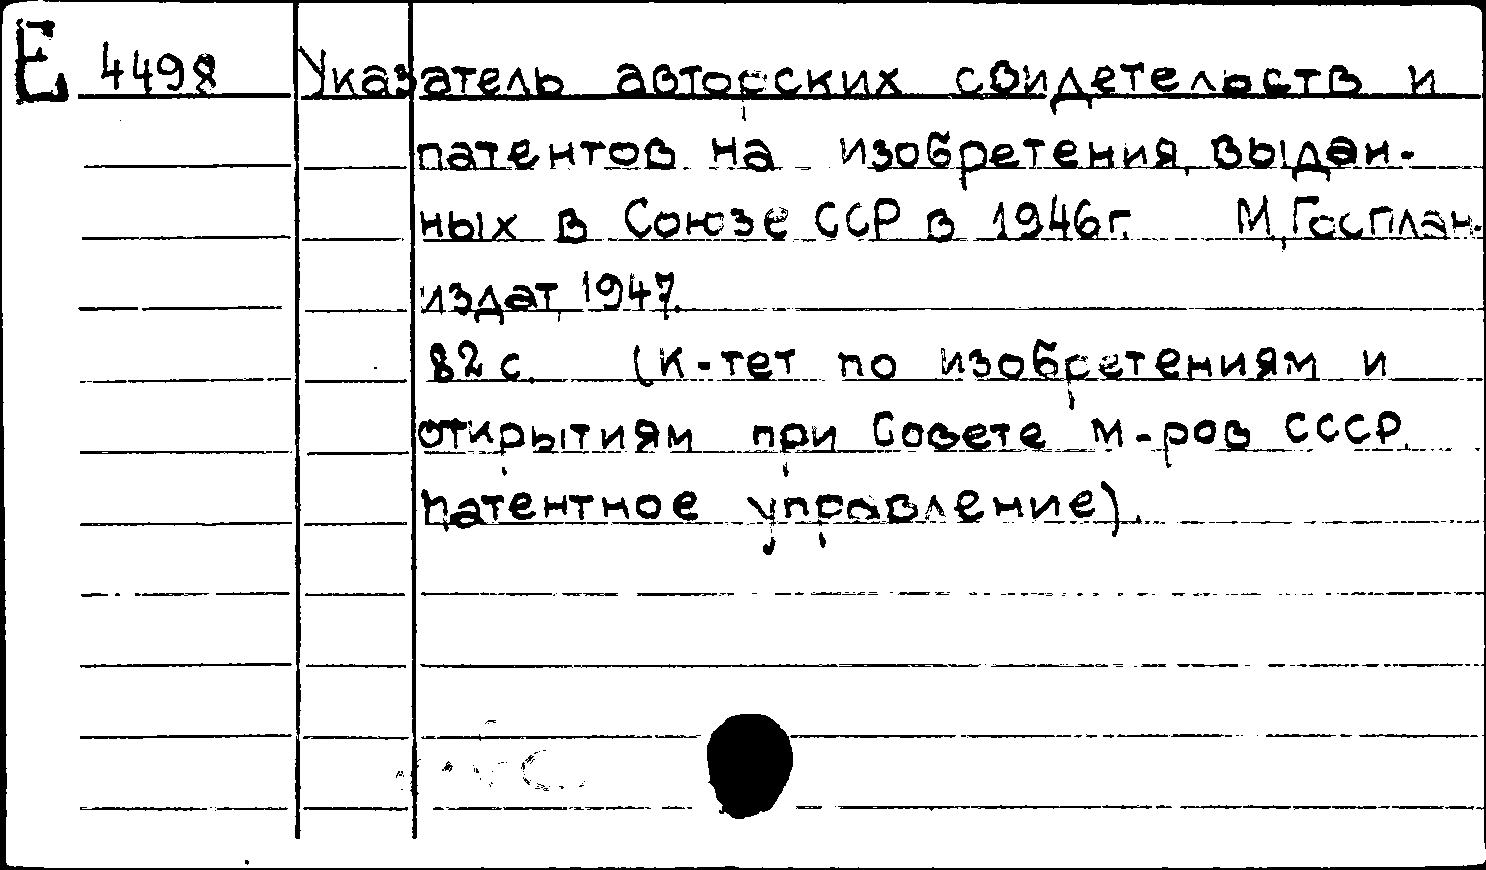 Е 4498 Указатель авторских свидетельств и
патентов на изобретения, выдан-
ных в Союзе ССР в 1946г. М, Госплан-
издат, 1947.
82 с. (К-тет по изобретениям и
открытиям при Совете м-ров СССР.
патентное управление).